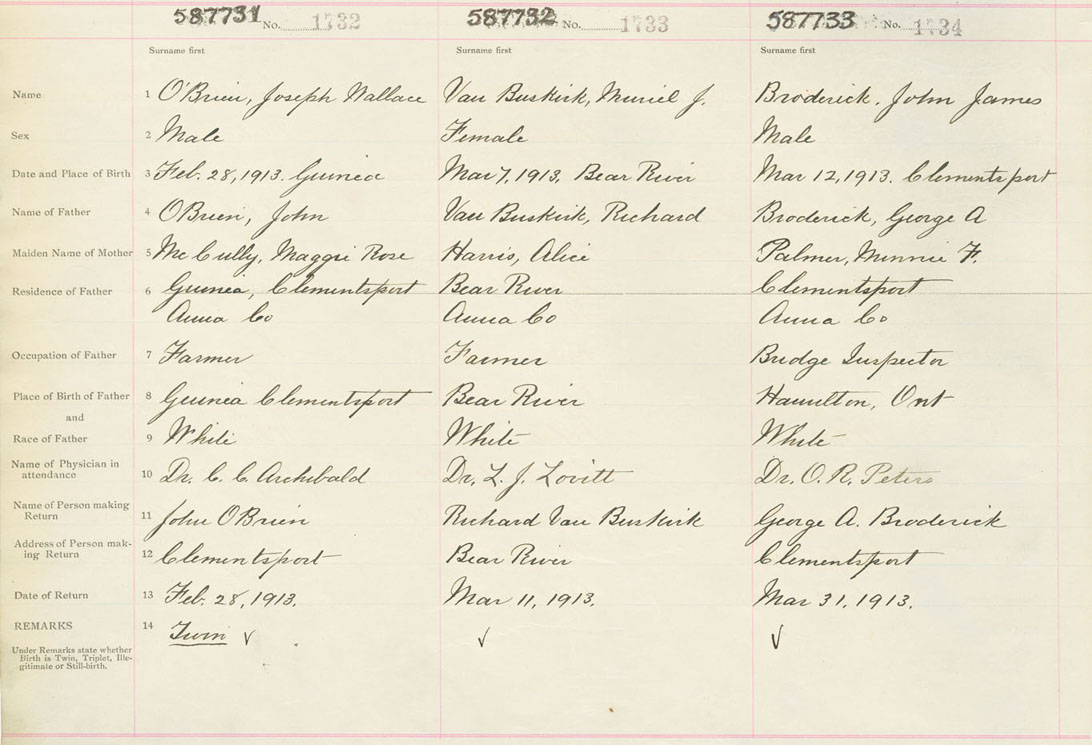 587731 No. 1732 587732 No. 1733 587733 No. 1734
Surname first Surname first Surname first
Name 1 O'Brien, Joseph Wallace Van Buskirk, Muriel J. Broderick, John James
Sex 2 Male Female Male
Date and Place of Birth 3 Feb. 28, 1913. Guinea Mar 7, 1913. Bear River Mar 12, 1913. Clementsport
Name of Father 4 O'Brien, John Van Buskirk, Richard Broderick, George A
Maiden Name of Mother 5 McCully, Maggie Rose Harris, Alice Palmer, Minnie F.
Residence of Father 6 Guinea, Clementsport Bear River Clementsport
Anna Co Anna Co Anna Co
Occupation of Father 7 Farmer Farmer Bridge Inspector
Place of Birth of Father 8 Guinea Clementsport Bear River Hamilton, Ont
and
Race of Father 9 White White White
Name of Physician in
attendance 10 Dr. C. C. Archibald Dr. L. J. Lovitt Dr. O. R. Peters
Name of Person making
Return 11 John O'Brien Richard Van Buskirk George A. Broderick
Address of Person mak-
ing Return 12 Clementsport Bear River Clementsport
Date of Return 13 Feb. 28, 1913. Mar 11, 1913. Mar 31, 1913.
REMARKS 14 Twin ✓ ✓ ✓
Under Remarks state whether
Birth is Twin, Triplet, Ille-
gitimate or Still-birth.